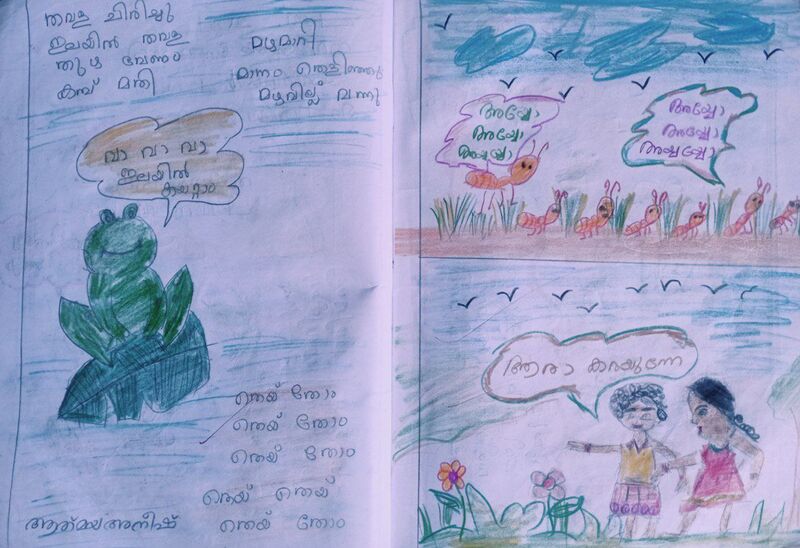 തവള ചിരിച്ചു
ഇലയിൽ തവള
തുഴ വേണം
കമ്പ് മതി
മഴമാറി
മാനം തെളിഞ്ഞു
മഴവില്ല് വന്നു
വാ വാ വാ
ഇലയിൽ
കയറ്റാം
തെയ് തോം
തെയ് തോം
തെയ് തോം
തെയ് തെയ്
തെയ് തോം
അനീഷ്
അയ്യോ
അയ്യോ
അയ്യയ്യോ
അയ്യോ
അയ്യോ
അയ്യയ്യോ
ആരാ കരയുന്നേ